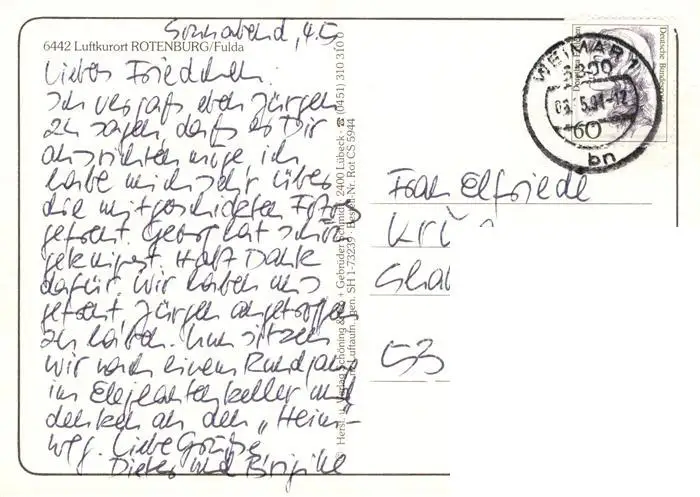 Sonnabend, 4.5.
6442 Luftkurort ROTENBURG/Fulda
Liebes Friedchen!
Ich vergaß eben Jürgen
zu sagen, daß er Dir
ausrichten möge, ich
habe mich sehr über
die mitgeschickten Fotos
gefreut. Georg hat schön
geknipst. Habt Dank
dafür. Wir haben uns
gefreut, Jürgen angetroffen
zu haben. Nun sitzen
wir nach einem Rundgang
im Elefantenkeller und
denken an den „Heim-
weg. Liebe Grüße
Dieter und Brigitte
Herst. u. Verlag Schöning & Co + Gebrüder Schmidt, 2400 Lübeck · ☎ (0451) 310 310
Luftaufn. gen. SH 1-73239 · Bestell-Nr. Rot CS 5944
Deutsche Bundespost
60
WEIMAR 1
5300
06.5.91-12
bn
Frau Elfriede
53